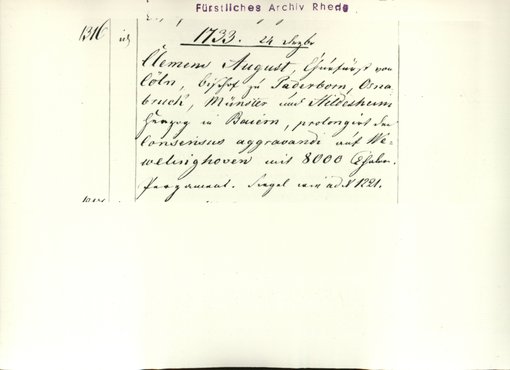 Fürstliches Archiv Rheda
1316 id 1733. 24 Dezbr
Clemens August, Churfürst von
Cöln, Bischof zu Paderborn, Osna
bruck, Münster und Hildesheim
Herzog in Baiern, prolongirt den
Consensus aggravandi auf We-
velinghoven mit 8000 Thaler.
Pergament. Siegel wie ad N 1221.